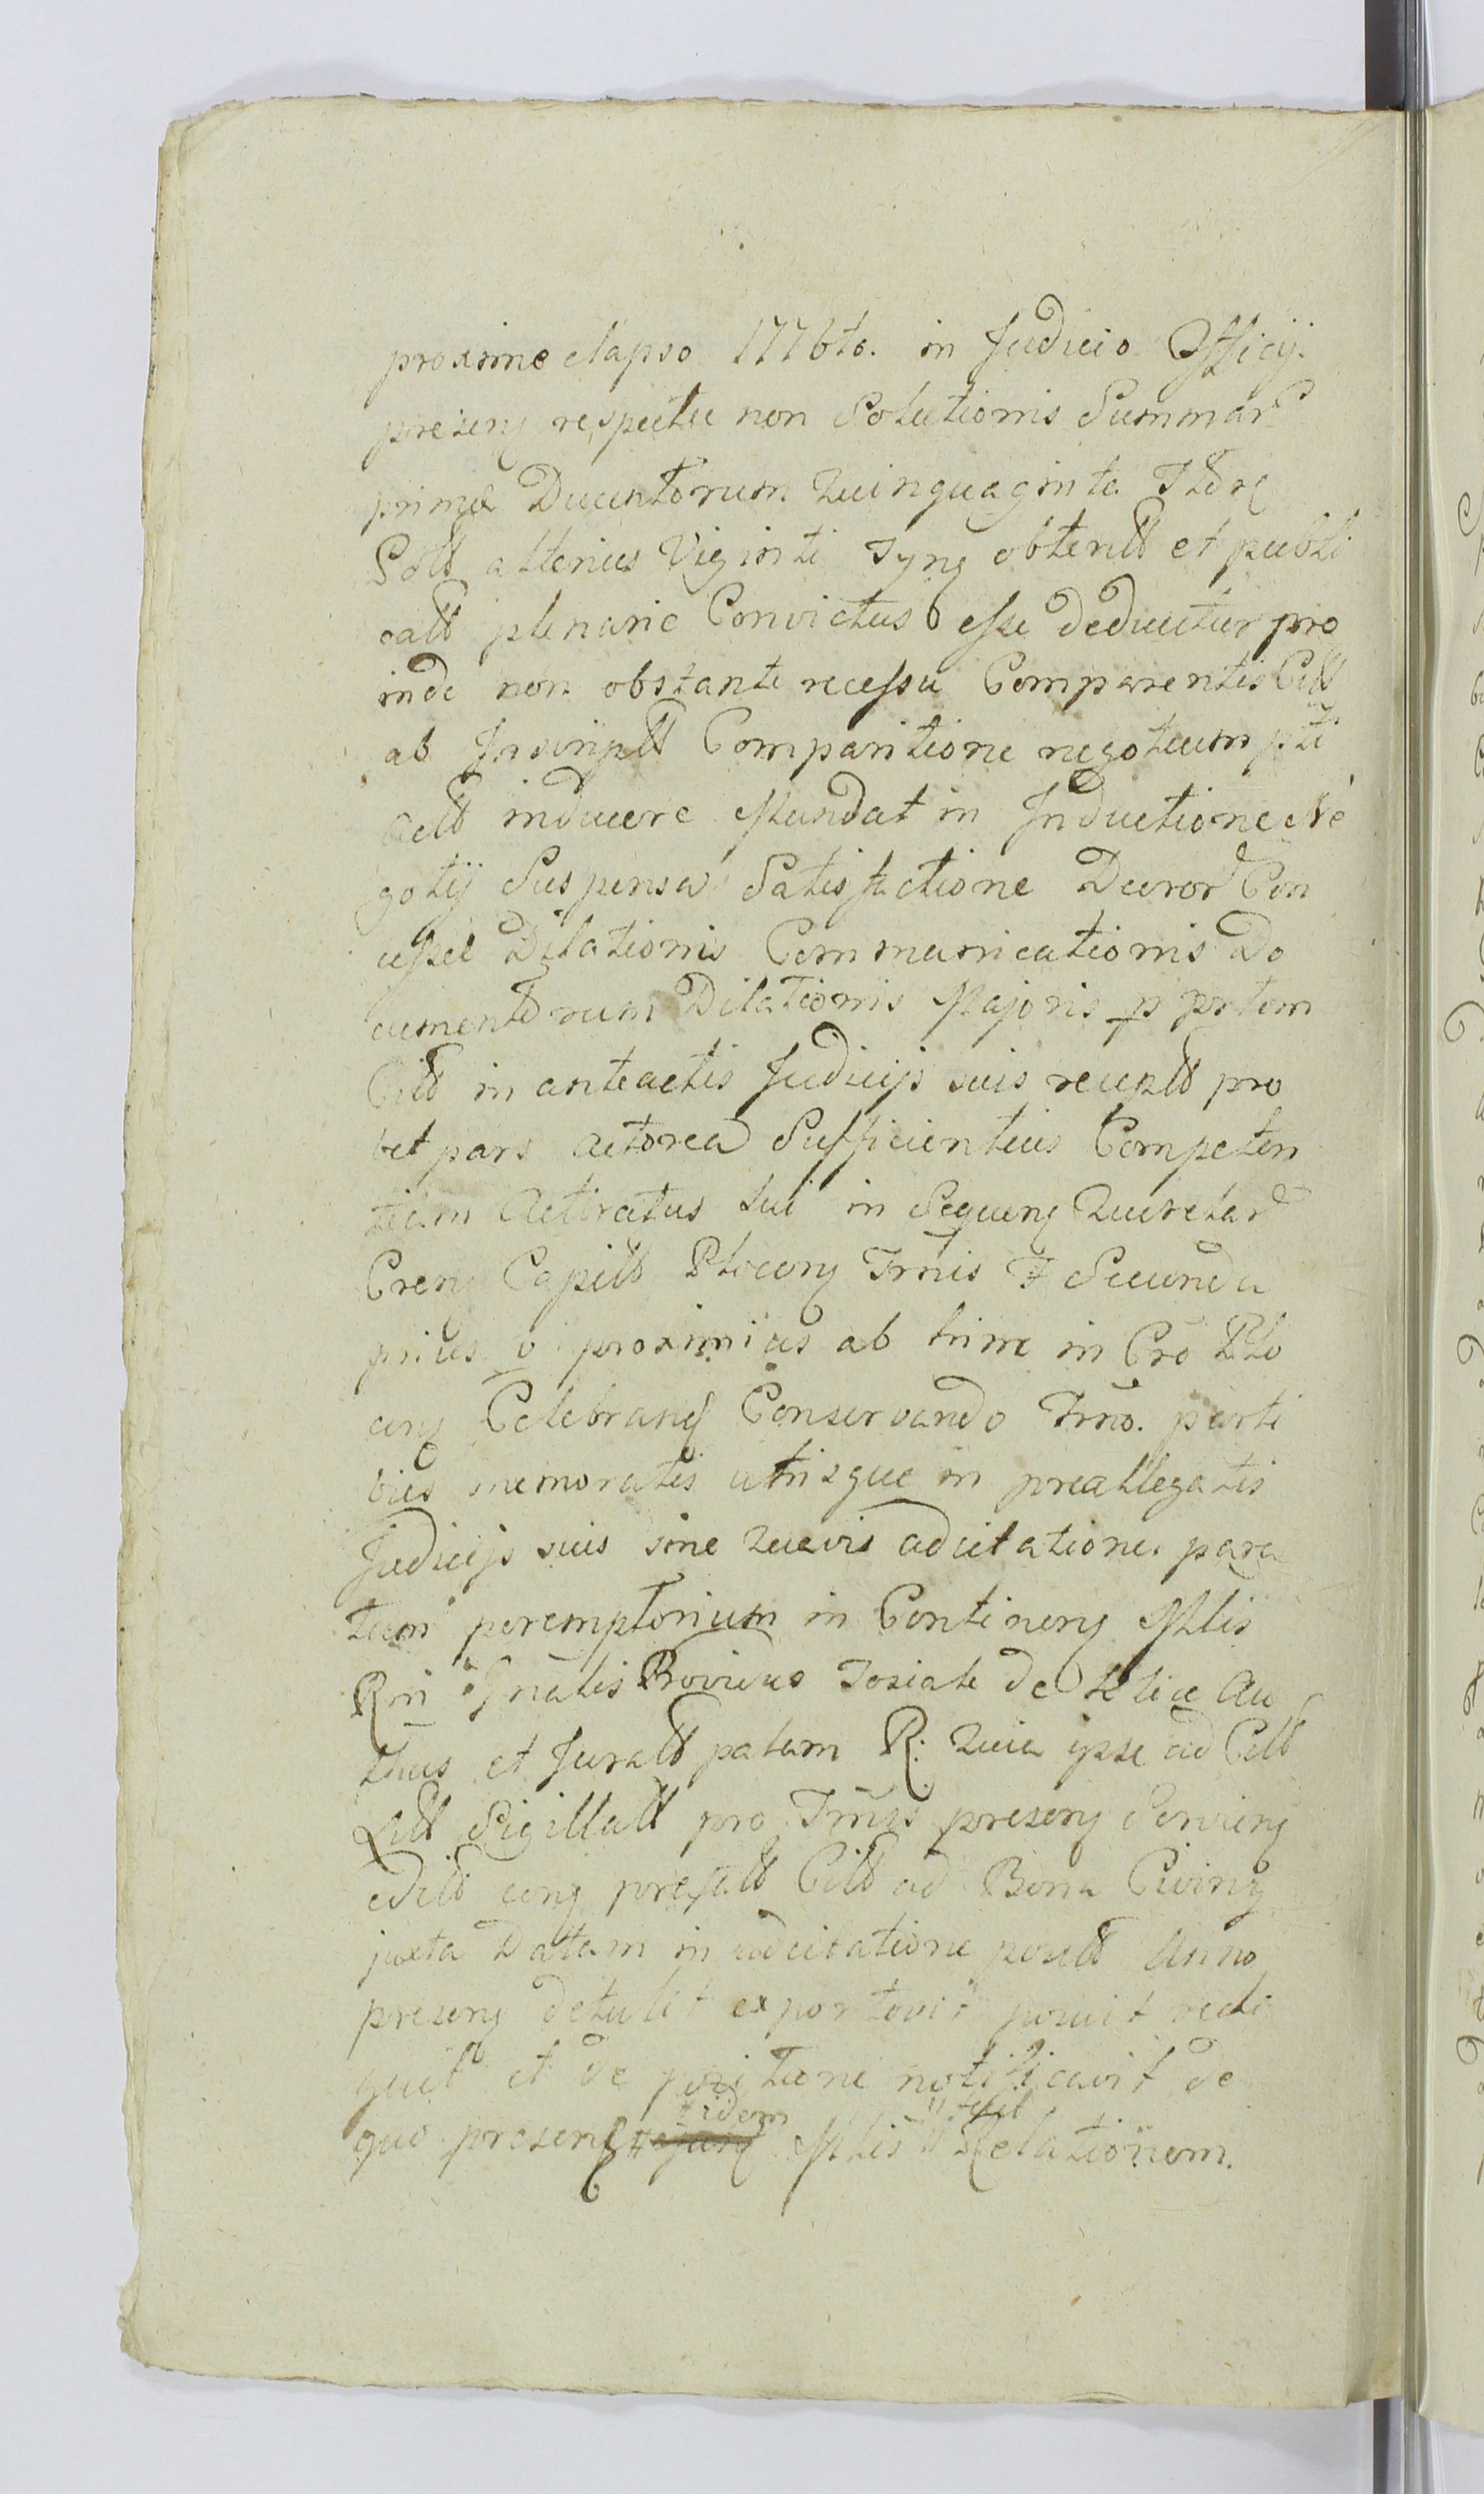 proxime elapso 1776to. in Judicio Officij
presenz respectu non Solutionis Summar
primæ Ducentorum Quinquaginta Flore
Poll alterius Viginti Tynf obtentt et publi
catt plenarie Convictus esse deducitur pro
inde non obstante recessu Comparentis Citt
ab Inscriptt Comparitione negotium pti
actt inducere Mandat in Inductione Ne
gotij Suspensa Satisfactione Duror Con
cessæ Dilationis Communicationis Do
cumentorum Dilationis Majoris p prtem
Citt in anteactis Judicijs suis receptt pro
bet pars actorea Sufficientius Competen
tiam Actoratus sui in Sequenz Querelar
Crenz Capitt Plocenz Trmis F Secundu
prius v proximius ab hinc in Cro Plo
cenz Celebranz Conservando Trmo. parti
bus memoratis utrisque in preallegatis
Judicijs suis sine quavis adcitatione para
tum peremptorium in Continenz Mlis
Rni Gnalis Provicus Josiah de
thus et Juratt palam R: Quia ipse ad Citt
Litt Sigillatt pro Trmis presenz Servienz
editt conz prefatt Citt ad Bona Civinz
juxta Datam in adcitatione positt Anno
presenz detulit exportavit posuit reli
quit et de positione notificavit de
quo presenz # ejusd # idem Mlis " fecit Relationem.